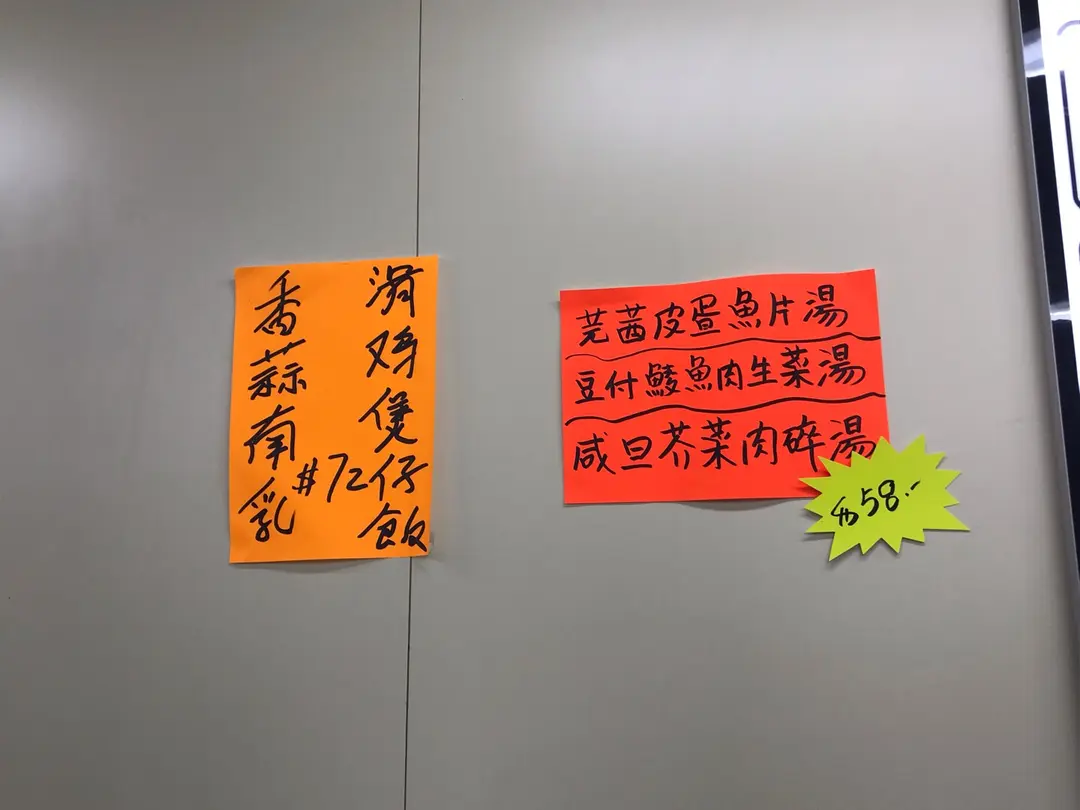 香蒜南乳
滑鸡煲仔飯
#72
芫茜皮疍魚片湯
豆付鯪魚肉生菜湯
咸旦芥菜肉碎湯
$58.-